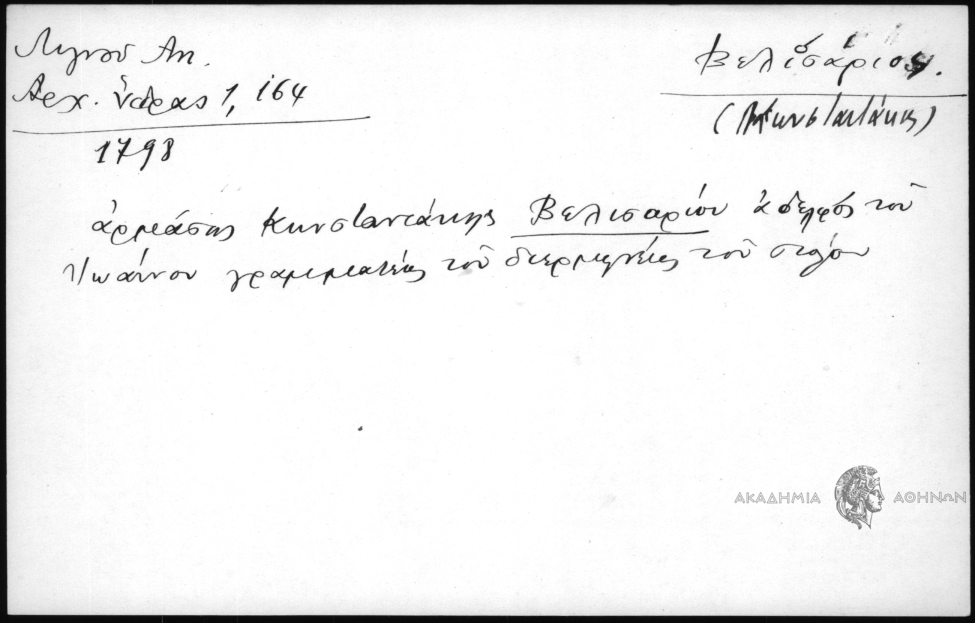 Λιγνού Αν.
Αρχ. Ύδρας 1, 164
1798
Βελισάριος.
(Κωνσταντάκης)
ἀρμάσης Κωνσταντάκης Βελισαρίου ἀδελφός τοῦ
Ἰωάννου γραμματέας τοῦ διερμηνέως τοῦ στόλου
ΑΚΑΔΗΜΙΑ ΑΘΗΝΩΝ